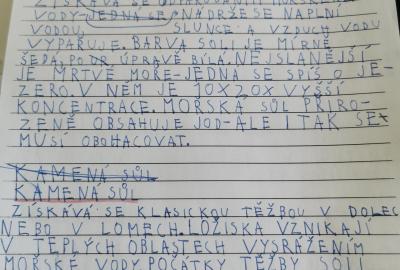 ZÍSKÁVÁ SE ODPAŘOVÁNÍM MOŘSKÉ
VODY-JEDNA SE. NÁDRŽE SE NAPLNÍ
VODOU, SLUNCE A VZDUCH VODU
VYPAŘUJE. BARVA SOLI JE MÍRNĚ
ŠEDÁ, PO ÚPRAVĚ BÍLÁ. NEJSLANĚJŠÍ
JE MRTVÉ MOŘE-JEDNA SE SPÍŠ O JE-
ZERO. V NĚM JE 10X20X VYŠŠÍ
KONCENTRACE. MOŘSKÁ SŮL PŘIRO-
ZENĚ OBSAHUJE JOD-ALE I TAK SE
MUSÍ OBOHACOVAT.
KAMENÁ SŮL
KAMENÁ SŮL
ZÍSKÁVÁ SE KLASICKOU TĚŽBOU V DOLEC
NEBO V LOMECH. LOŽISKA VZNIKAJÍ
V TEPLÝCH OBLASTECH VYSRÁŽENÍM
MOŘSKÉ VODY POČÁTKY TĚŽBY SOLI